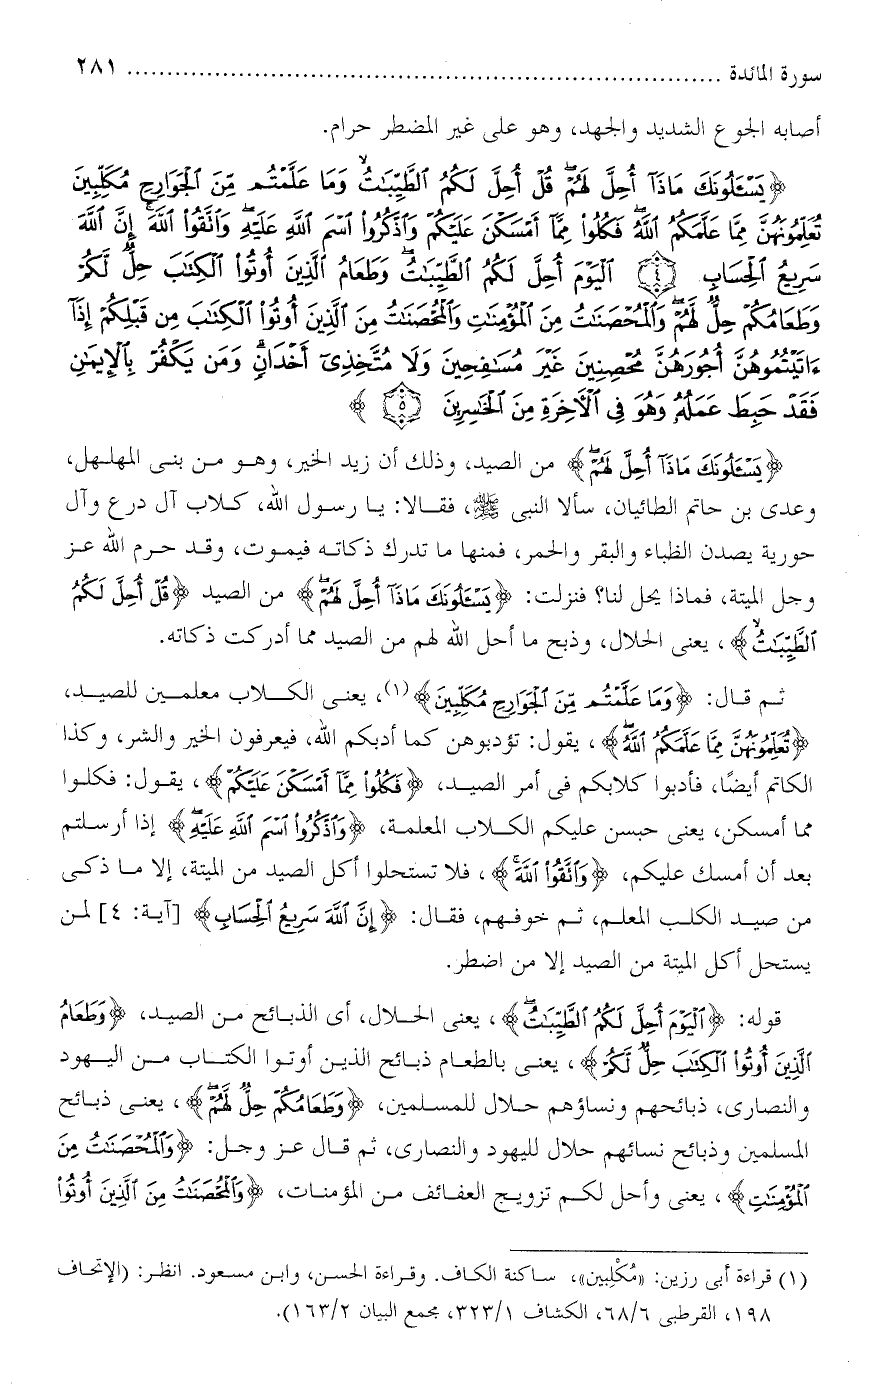 سورة المائدة ........................................................................ ٢٨١
أصابه الجوع الشديد والجهد، وهو على غير المضطر حرام.
﴿يَسْـَٔلُونَكَ مَاذَآ أُحِلَّ لَهُمْ ۖ قُلْ أُحِلَّ لَكُمُ ٱلطَّيِّبَـٰتُ ۙ وَمَا عَلَّمْتُم مِّنَ ٱلْجَوَارِحِ مُكَلِّبِينَ
تُعَلِّمُونَهُنَّ مِمَّا عَلَّمَكُمُ ٱللَّهُ ۖ فَكُلُوا۟ مِمَّآ أَمْسَكْنَ عَلَيْكُمْ وَٱذْكُرُوا۟ ٱسْمَ ٱللَّهِ عَلَيْهِ ۖ وَٱتَّقُوا۟ ٱللَّهَ ۚ إِنَّ ٱللَّهَ
سَرِيعُ ٱلْحِسَابِ ٤ ٱلْيَوْمَ أُحِلَّ لَكُمُ ٱلطَّيِّبَـٰتُ ۖ وَطَعَامُ ٱلَّذِينَ أُوتُوا۟ ٱلْكِتَـٰبَ حِلٌّ لَّكُمْ
وَطَعَامُكُمْ حِلٌّ لَّهُمْ ۖ وَٱلْمُحْصَنَـٰتُ مِنَ ٱلْمُؤْمِنَـٰتِ وَٱلْمُحْصَنَـٰتُ مِنَ ٱلَّذِينَ أُوتُوا۟ ٱلْكِتَـٰبَ مِن قَبْلِكُمْ إِذَآ
ءَاتَيْتُمُوهُنَّ أُجُورَهُنَّ مُحْصِنِينَ غَيْرَ مُسَـٰفِحِينَ وَلَا مُتَّخِذِىٓ أَخْدَانٍ ۗ وَمَن يَكْفُرْ بِٱلْإِيمَـٰنِ
فَقَدْ حَبِطَ عَمَلُهُۥ وَهُوَ فِى ٱلْـَٔاخِرَةِ مِنَ ٱلْخَـٰسِرِينَ ٥ ﴾
﴿يَسْـَٔلُونَكَ مَاذَآ أُحِلَّ لَهُمْ ۖ﴾ من الصيد، وذلك أن زيد الخير، وهو من بنى المهلهل،
وعدى بن حاتم الطائيان، سألا النبى ﷺ، فقالا: يا رسول الله، كلاب آل درع وآل
حورية يصدن الظباء والبقر والحمر، فمنها ما تدرك ذكاته فيموت، وقد حرم الله عز
وجل الميتة، فماذا يحل لنا؟ فنزلت: ﴿يَسْـَٔلُونَكَ مَاذَآ أُحِلَّ لَهُمْ ۖ﴾ من الصيد ﴿قُلْ أُحِلَّ لَكُمُ
ٱلطَّيِّبَـٰتُ ۙ﴾، يعنى الحلال، وذبح ما أحل الله لهم من الصيد مما أدركت ذكاته.
ثم قال: ﴿وَمَا عَلَّمْتُم مِّنَ ٱلْجَوَارِحِ مُكَلِّبِينَ﴾(١)، يعنى الكلاب معلمين للصيد،
﴿تُعَلِّمُونَهُنَّ مِمَّا عَلَّمَكُمُ ٱللَّهُ ۖ﴾، يقول: تؤدبوهن كما أدبكم الله، فيعرفون الخير والشر، وكذا
الكاتم أيضًا، فأدبوا كلابكم فى أمر الصيد، ﴿فَكُلُوا۟ مِمَّآ أَمْسَكْنَ عَلَيْكُمْ﴾، يقول: فكلوا
مما أمسكن، يعنى حبسن عليكم الكلاب المعلمة، ﴿وَٱذْكُرُوا۟ ٱسْمَ ٱللَّهِ عَلَيْهِ ۖ﴾ إذا أرسلتم
بعد أن أمسك عليكم، ﴿وَٱتَّقُوا۟ ٱللَّهَ ۚ﴾، فلا تستحلوا أكل الصيد من الميتة، إلا ما ذكى
من صيد الكلب المعلم، ثم خوفهم، فقال: ﴿إِنَّ ٱللَّهَ سَرِيعُ ٱلْحِسَابِ﴾ [آية: ٤] لمن
يستحل أكل الميتة من الصيد إلا من اضطر.
قوله: ﴿ٱلْيَوْمَ أُحِلَّ لَكُمُ ٱلطَّيِّبَـٰتُ ۖ﴾، يعنى الحلال، أى الذبائح من الصيد، ﴿وَطَعَامُ
ٱلَّذِينَ أُوتُوا۟ ٱلْكِتَـٰبَ حِلٌّ لَّكُمْ﴾، يعنى بالطعام ذبائح الذين أوتوا الكتاب من اليهود
والنصارى، ذبائحهم ونساؤهم حلال للمسلمين، ﴿وَطَعَامُكُمْ حِلٌّ لَّهُمْ ۖ﴾، يعنى ذبائح
المسلمين وذبائح نسائهم حلال لليهود والنصارى، ثم قال عز وجل: ﴿وَٱلْمُحْصَنَـٰتُ مِنَ
ٱلْمُؤْمِنَـٰتِ﴾، يعنى وأحل لكم تزويج العفائف من المؤمنات، ﴿وَٱلْمُحْصَنَـٰتُ مِنَ ٱلَّذِينَ أُوتُوا۟
(١) قراءة أبى رزين: «مُكْلِبين»، ساكنة الكاف. وقراءة الحسن، وابن مسعود. انظر: (الإتحاف
١٩٨، القرطبى ٦٨/٦، الكشاف ٣٢٣/١، مجمع البيان ١٦٣/٢).